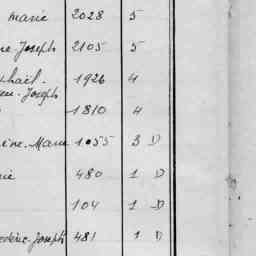 Marie 2028 5
ne-Joseph 2105 5
phaël- 1926 4
en-Joseph
1810 4
ine-Marie 1055 3 D
ie 480 1 D
104 1 D
édéric-Joseph 481 1 D